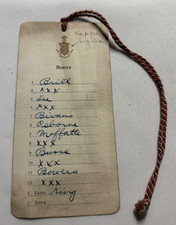 Dances
1 Brill
2 xxx
3 Lee
4 xxx
5 Bivans
6 Osborne
7 Moffatte
8 xxx
9 Busse
10 xxx
11 Bowers
12 xxx
1 Extra King
2 Extra